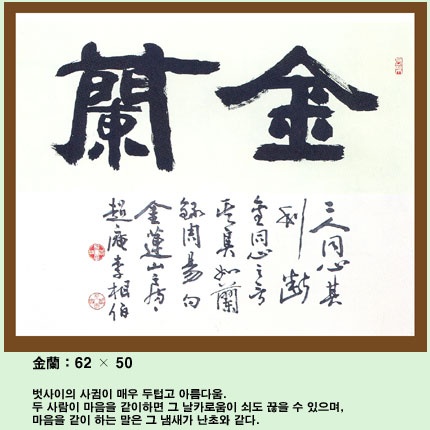 金蘭
二人同心其
利斷
金同心之言
其臭如蘭
錄周易句
金蓮山房
庵李根伯
金蘭 : 62 × 50
벗사이의 사귐이 매우 두텁고 아름다움.
두 사람이 마음을 같이하면 그 날카로움이 쇠도 끊을 수 있으며,
마음을 같이 하는 말은 그 냄새가 난초와 같다.